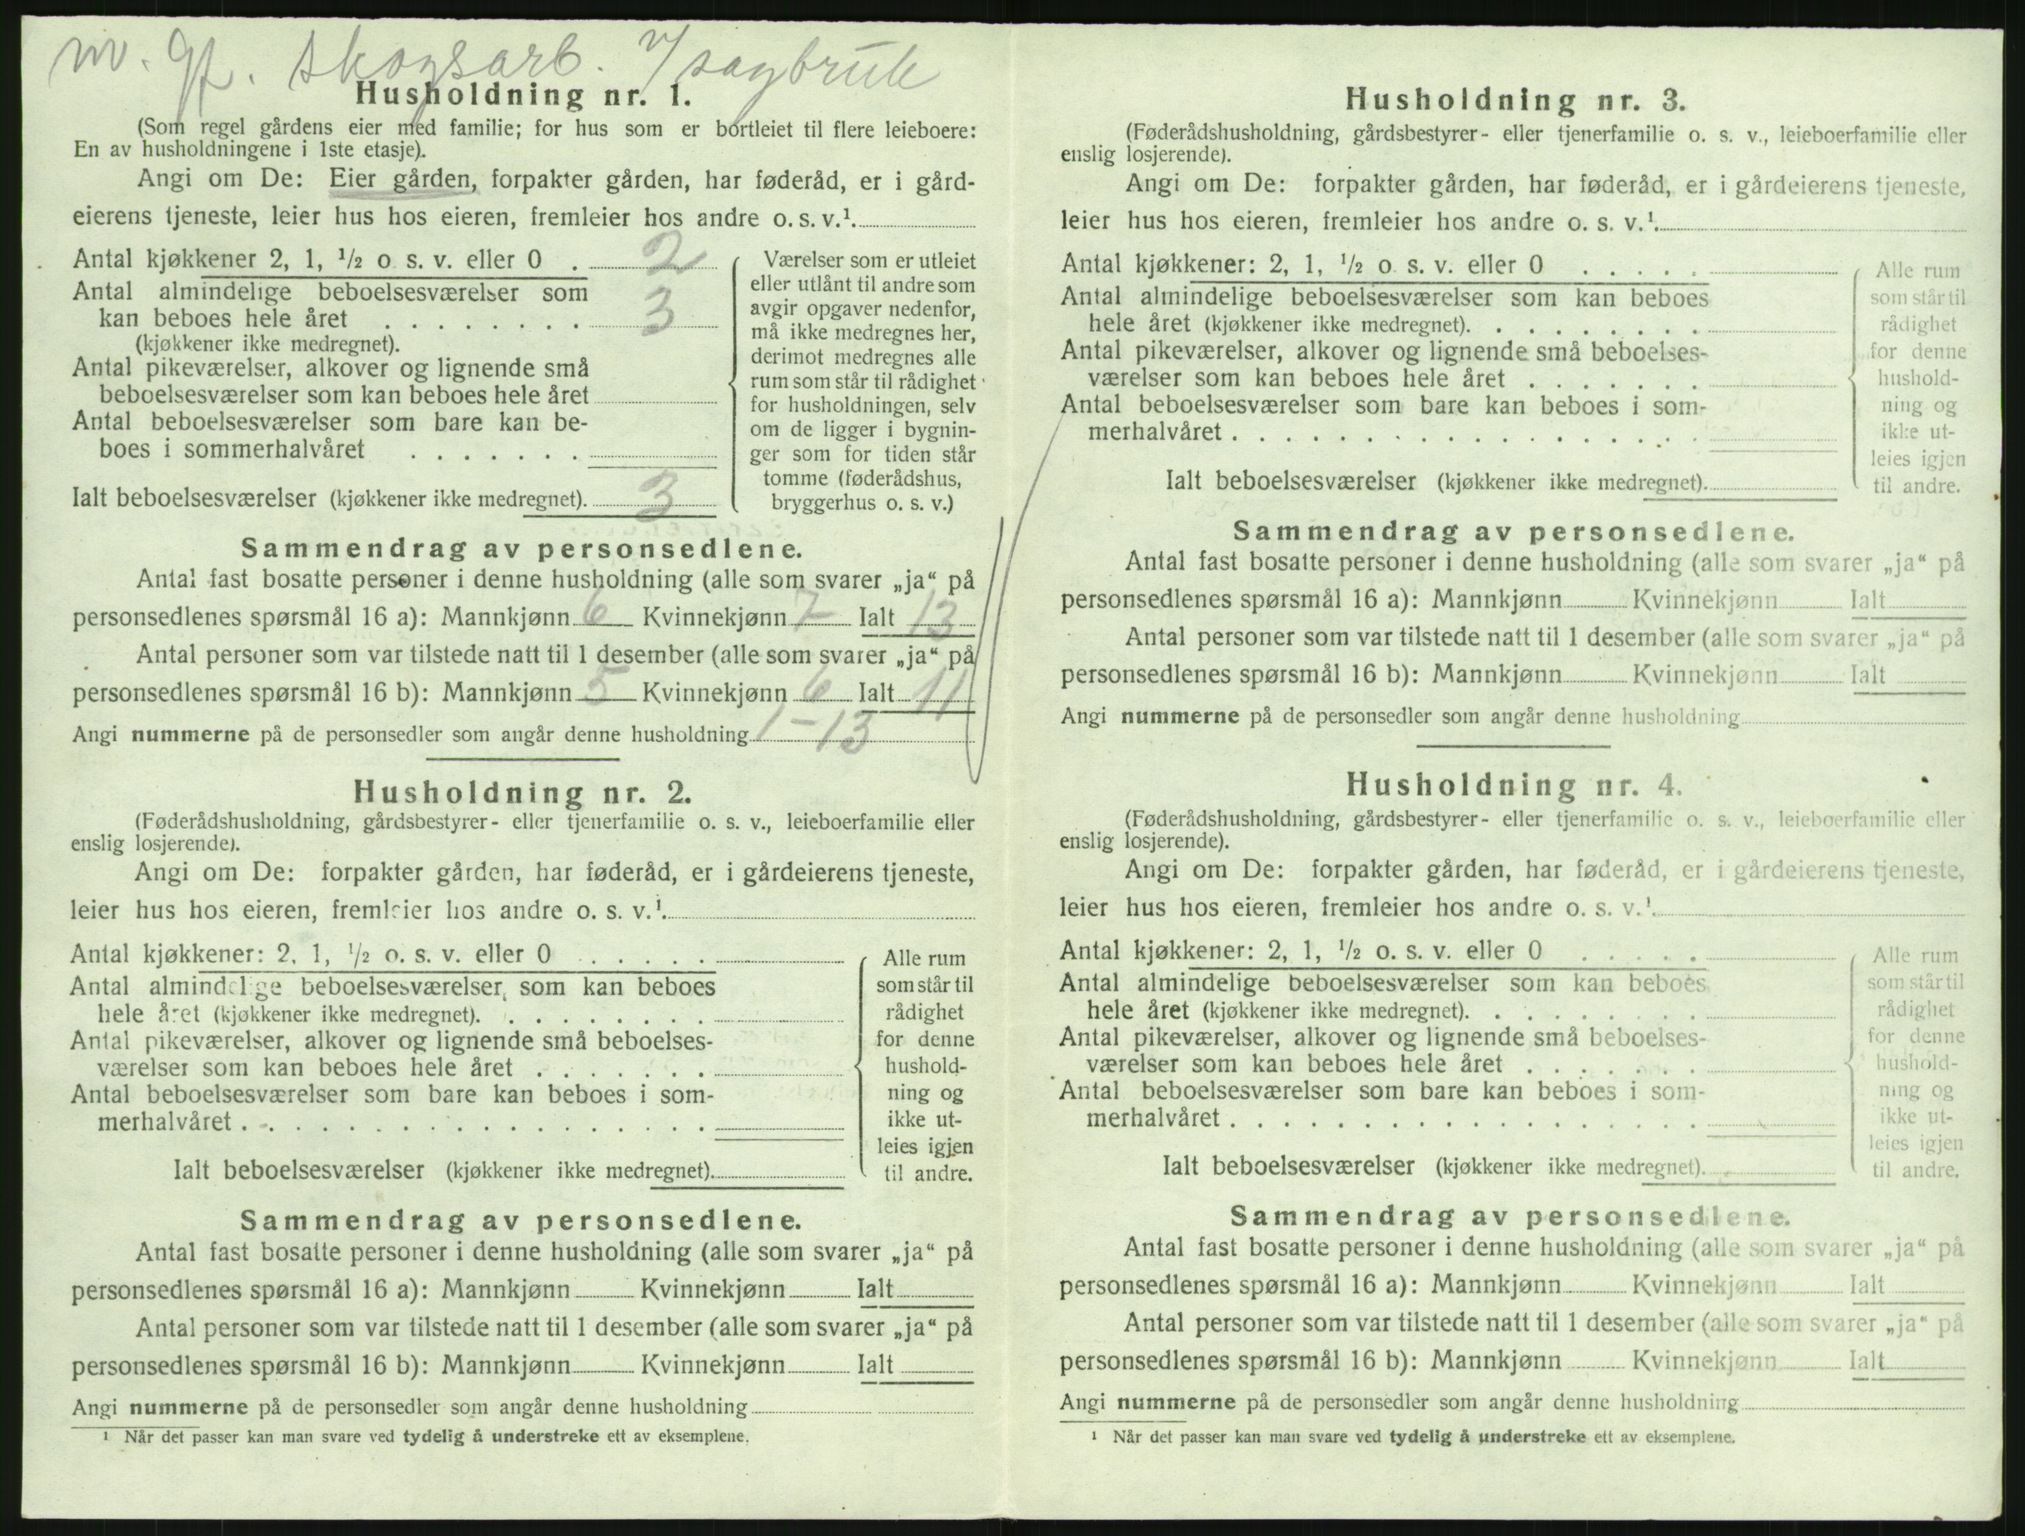 Skogsarb. v/sagbruk
Husholdning nr. 1.
(Som regel gårdens eier med familie; for hus som er bortleiet til flere leieboere:
En av husholdningene i 1ste etasje).
Angi om De: Eier gården, forpakter gården, har føderåd, er i gård-
eierens tjeneste, leier hus hos eieren, fremleier hos andre o. s. v.¹.
Antal kjøkkener 2, 1, ½ o. s. v. eller 0 . 2
Antal almindelige beboelsesværelser som
kan beboes hele året . . . . . . . . 3
(kjøkkener ikke medregnet).
Antal pikeværelser, alkover og lignende små
beboelsesværelser som kan beboes hele året
Antal beboelsesværelser som bare kan be-
boes i sommerhalvåret . . . . . . .
Ialt beboelsesværelser (kjøkkener ikke medregnet). 3
Værelser som er utleiet
eller utlånt til andre som
avgir opgaver nedenfor,
må ikke medregnes her,
derimot medregnes alle
rum som står til rådighet
for husholdningen, selv
om de ligger i bygnin-
ger som for tiden står
tomme (føderådshus,
bryggerhus o. s. v.)
Sammendrag av personsedlene.
Antal fast bosatte personer i denne husholdning (alle som svarer „ja“ på
personsedlenes spørsmål 16 a): Mannkjønn 6 Kvinnekjønn 7 Ialt 13
Antal personer som var tilstede natt til 1 desember (alle som svarer „ja“ på
personsedlenes spørsmål 16 b): Mannkjønn 5 Kvinnekjønn 6 Ialt 11
Angi nummerne på de personsedler som angår denne husholdning 1-13
Husholdning nr. 2.
(Føderådshusholdning, gårdsbestyrer- eller tjenerfamilie o. s. v., leieboerfamilie eller
enslig losjerende).
Angi om De: forpakter gården, har føderåd, er i gårdeierens tjeneste,
leier hus hos eieren, fremleier hos andre o. s. v.¹.
Antal kjøkkener: 2, 1, ½ o. s. v. eller 0 . . . . .
Antal almindelige beboelsesværelser som kan beboes
hele året (kjøkkener ikke medregnet). . . . . . . . .
Antal pikeværelser, alkover og lignende små beboelses-
værelser som kan beboes hele året . . . . . . .
Antal beboelsesværelser som bare kan beboes i som-
merhalvåret . . . . . . . . . . . . . . . . . .
Ialt beboelsesværelser (kjøkkener ikke medregnet).
Alle rum
som står til
rådighet
for denne
hushold-
ning og
ikke ut-
leies igjen
til andre.
Sammendrag av personsedlene.
Antal fast bosatte personer i denne husholdning (alle som svarer „ja“ på
personsedlenes spørsmål 16 a): Mannkjønn Kvinnekjønn Ialt
Antal personer som var tilstede natt til 1 desember (alle som svarer „ja“ på
personsedlenes spørsmål 16 b): Mannkjønn Kvinnekjønn Ialt
Angi nummerne på de personsedler som angår denne husholdning
¹ Når det passer kan man svare ved tydelig å understreke ett av eksemplene.
Husholdning nr. 3.
(Føderådshusholdning, gårdsbestyrer- eller tjenerfamilie o. s. v., leieboerfamilie eller
enslig losjerende).
Angi om De: forpakter gården, har føderåd, er i gårdeierens tjeneste,
leier hus hos eieren, fremleier hos andre o. s. v.¹.
Antal kjøkkener: 2, 1, ½ o. s. v. eller 0 . . . . .
Antal almindelige beboelsesværelser som kan beboes
hele året (kjøkkener ikke medregnet). . . . . . . . .
Antal pikeværelser, alkover og lignende små beboelses-
værelser som kan beboes hele året . . . . . . .
Antal beboelsesværelser som bare kan beboes i som-
merhalvåret . . . . . . . . . . . . . . . . . .
Ialt beboelsesværelser (kjøkkener ikke medregnet).
Alle rum
som står til
rådighet
for denne
hushold-
ning og
ikke ut-
leies igjen
til andre.
Sammendrag av personsedlene.
Antal fast bosatte personer i denne husholdning (alle som svarer „ja“ på
personsedlenes spørsmål 16 a): Mannkjønn Kvinnekjønn Ialt
Antal personer som var tilstede natt til 1 desember (alle som svarer „ja“ på
personsedlenes spørsmål 16 b): Mannkjønn Kvinnekjønn Ialt
Angi nummerne på de personsedler som angår denne husholdning
Husholdning nr. 4.
(Føderådshusholdning, gårdsbestyrer- eller tjenerfamilie o. s. v., leieboerfamilie eller
enslig losjerende).
Angi om De: forpakter gården, har føderåd, er i gårdeierens tjeneste,
leier hus hos eieren, fremleier hos andre o. s. v.¹.
Antal kjøkkener: 2, 1, ½ o. s. v. eller 0 . . . . .
Antal almindelige beboelsesværelser som kan beboes
hele året (kjøkkener ikke medregnet). . . . . . . . .
Antal pikeværelser, alkover og lignende små beboelses-
værelser som kan beboes hele året . . . . . . .
Antal beboelsesværelser som bare kan beboes i som-
merhalvåret . . . . . . . . . . . . . . . . . .
Ialt beboelsesværelser (kjøkkener ikke medregnet).
Alle rum
som står til
rådighet
for denne
hushold-
ning og
ikke ut-
leies igjen
til andre.
Sammendrag av personsedlene.
Antal fast bosatte personer i denne husholdning (alle som svarer „ja“ på
personsedlenes spørsmål 16 a): Mannkjønn Kvinnekjønn Ialt
Antal personer som var tilstede natt til 1 desember (alle som svarer „ja“ på
personsedlenes spørsmål 16 b): Mannkjønn Kvinnekjønn Ialt
Angi nummerne på de personsedler som angår denne husholdning
¹ Når det passer kan man svare ved tydelig å understreke ett av eksemplene.